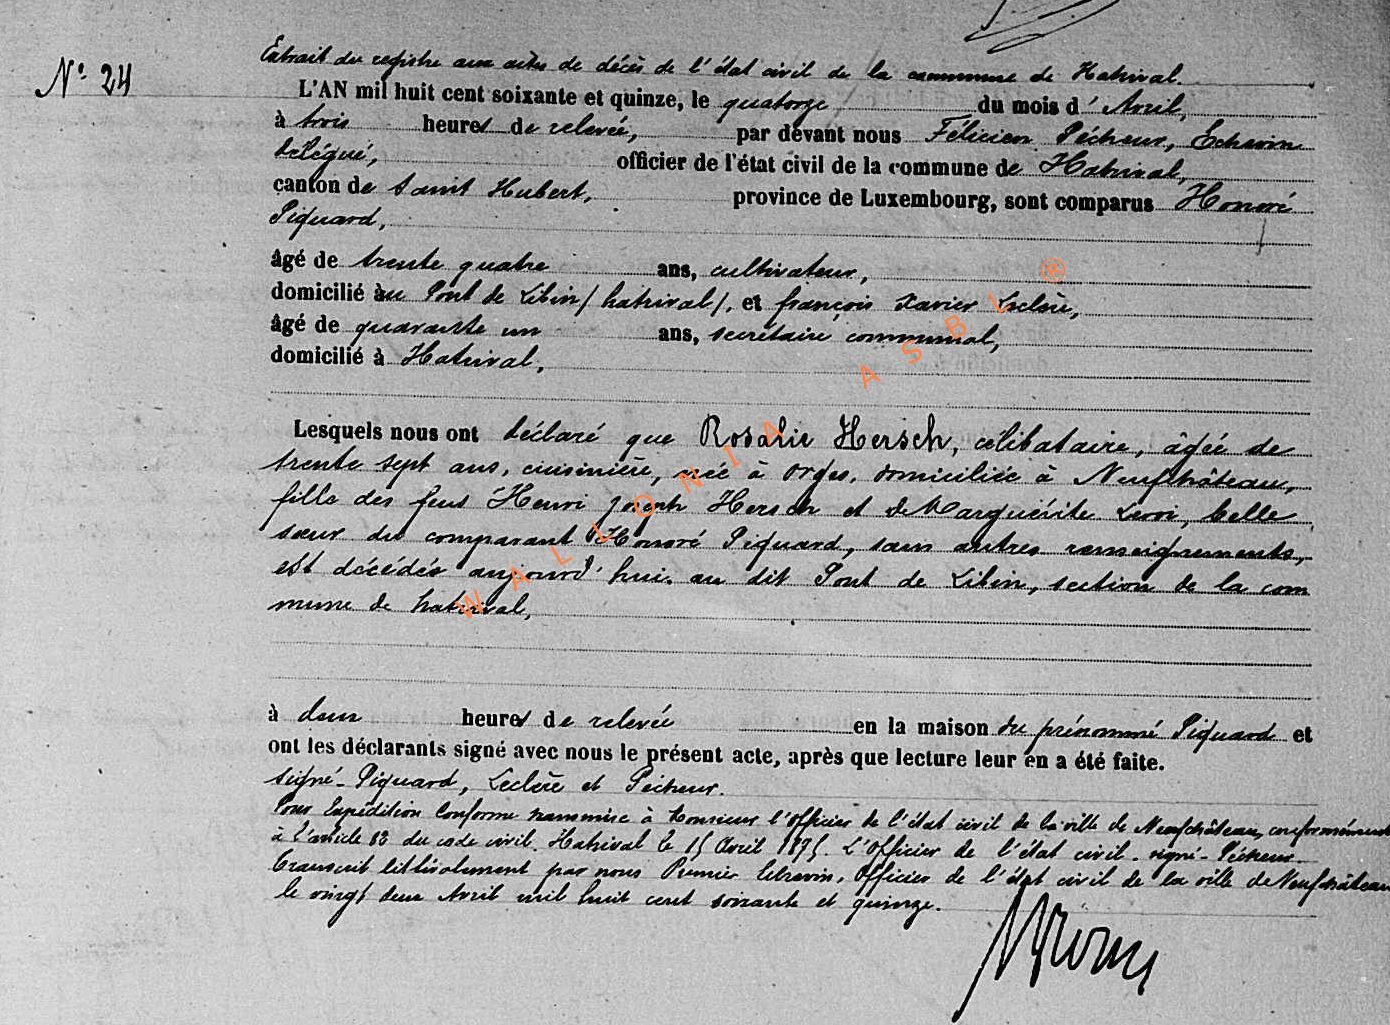 N° 24
Extrait du registre aux actes de décès de l'état civil de la commune de Hatrival
L'AN mil huit cent soixante et quinze, le quatorze du mois d'Avril,
à trois heures de relevée, par devant nous Félicien Pécheur, Echevin
délégué, officier de l'état civil de la commune de Hatrival,
canton de Saint Hubert, province de Luxembourg, sont comparus Honoré
Piquard,
âgé de trente quatre ans, cultivateur,
domicilié au Pont de Libin /hatrival/, et françois Xavier Leclère,
âgé de quarante un ans, secrétaire communal,
domicilié à Hatrival,
Lesquels nous ont déclaré que Rosalie Hersch, célibataire, âgée de
trente sept ans, cuisinière, née à Orgeo, domiciliée à Neufchâteau,
fille des feus Henri Joseph Hersch et de Marguérite Leroi, belle
sœur du comparant Honoré Piquard, sans autres renseignements,
est décédée aujourd'hui au dit Pont de Libin, section de la com
mune de hatrival,
à deux heures de relevée en la maison du prénommé Piquard et
ont les déclarants signé avec nous le présent acte, après que lecture leur en a été faite.
signé - Piquard, Leclère et Pécheur.
Pour Expédition Conforme transmise à Monsieur l'officier de l'état civil de la ville de Neufchâteau, conformément
à l'article 82 du code civil. Hatrival le 15 Avril 1875. L'Officier de l'état civil - signé - Pécheur
Transcrit littéralement par nous Premier Echevin, Officier de l'état civil de la ville de Neufchâteau
le vingt deux Avril mil huit cent soixante et quinze.
WALLONIA ASBL ®